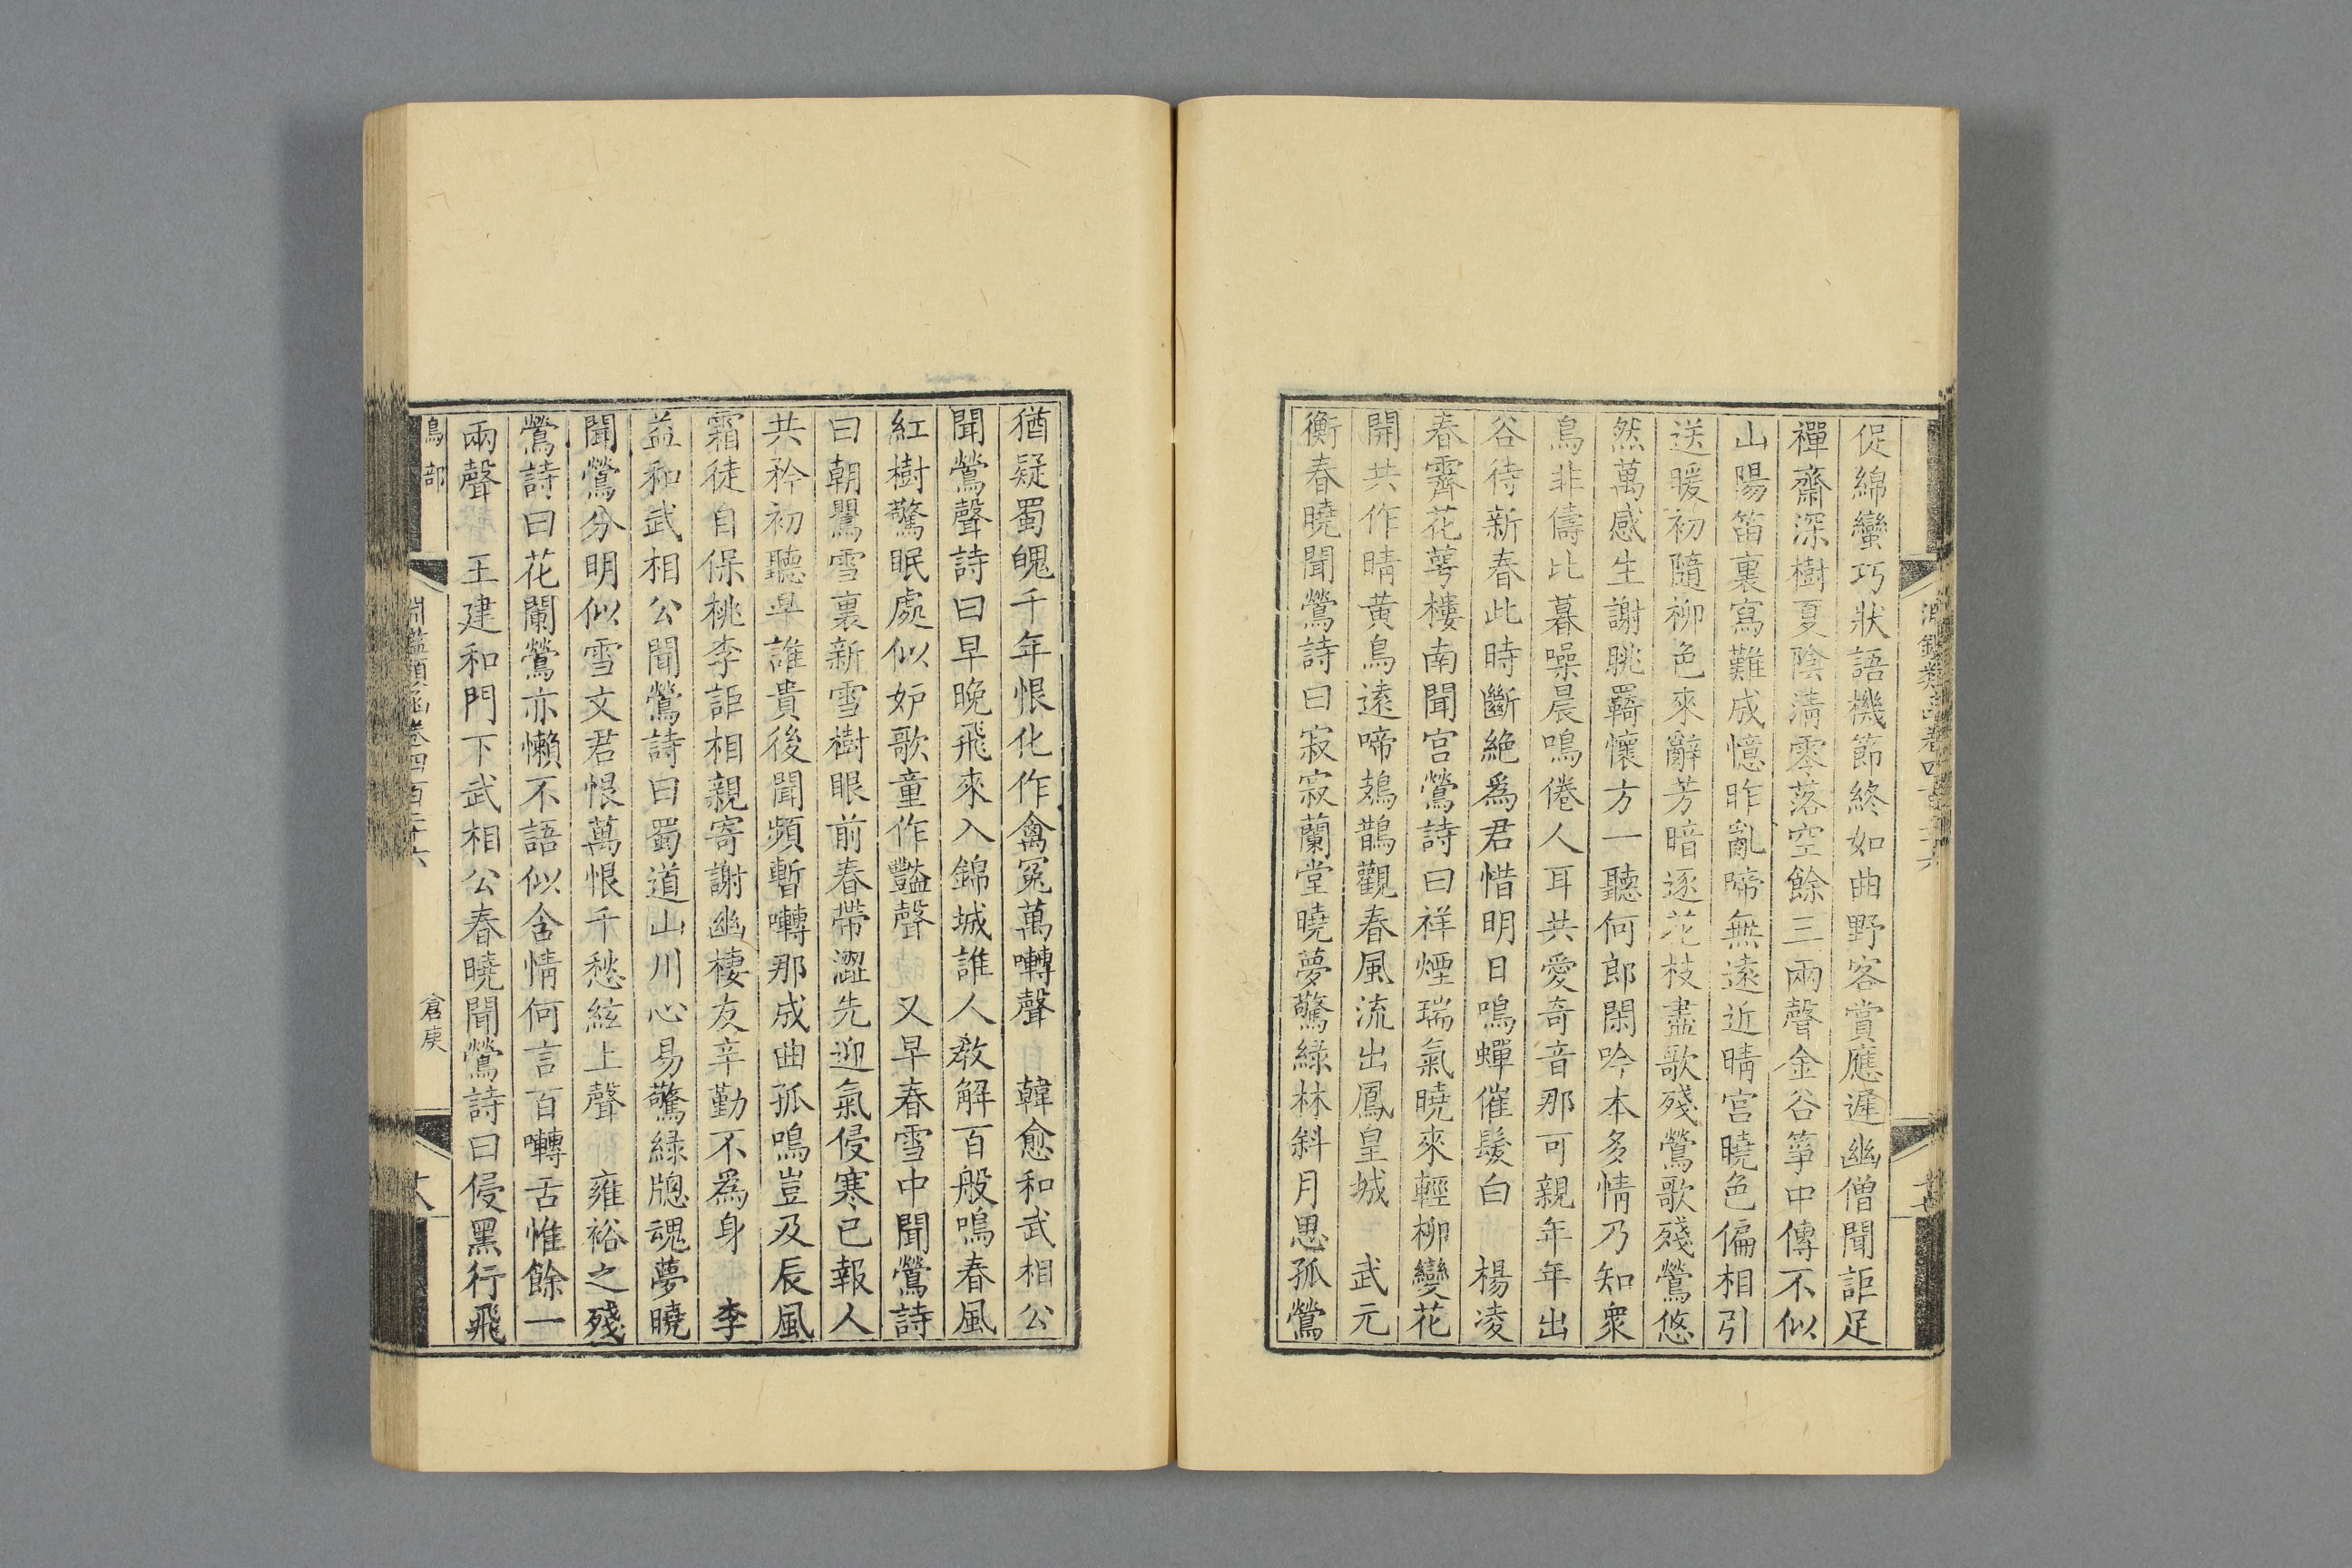 促綿蠻巧狀語機節終如曲野客賞應遲幽僧聞詎足
禪齋深樹夏陰清零落空餘三兩聲金谷箏中傳不似
山陽笛裏寫難成憶昨亂啼無遠近晴宮曉色偏相引
送暖初隨柳色來辭芳暗逐花枝盡歌殘鶯歌殘鶯悠
然萬感生謝朓羇懷方一聽何郎閑吟本多情乃知衆
鳥非儔比暮噪晨鳴倦人耳共愛奇音那可親年年出
谷待新春此時斷絶爲君惜明日鳴蟬催髮白 楊凌
春霽花萼樓南聞宮鶯詩曰祥煙瑞氣曉來輕柳變花
開共作晴黄鳥遠啼鳷鵲觀春風流出鳳皇城 武元
衡春曉聞鶯詩曰寂寂蘭堂曉夢驚緑林斜月思孤鶯
猶疑蜀魄千年恨化作禽冤萬囀聲 韓愈和武相公
聞鶯聲詩曰早晚飛來入錦城誰人敎解百般鳴春風
紅樹驚眠處似妒歌童作豔聲 又早春雪中聞鶯詩
曰朝鸎雪裏新雪樹眼前春帶澀先迎氣侵寒已報人
共矜初聽早誰貴後聞頻暫囀那成曲孤鳴豈及辰風
霜徒自保桃李詎相親寄謝幽棲友辛勤不爲身 李
益和武相公聞鶯詩曰蜀道山川心易驚緑牕魂夢曉
聞鶯分明似雪文君恨萬恨千愁絃上聲 雍裕之殘
鶯詩曰花闌鶯亦懶不語似含情何言百囀舌惟餘一
兩聲 王建和門下武相公春曉聞鶯詩曰侵黑行飛
鳥部
淵鑑類函卷四百二十六
倉庚